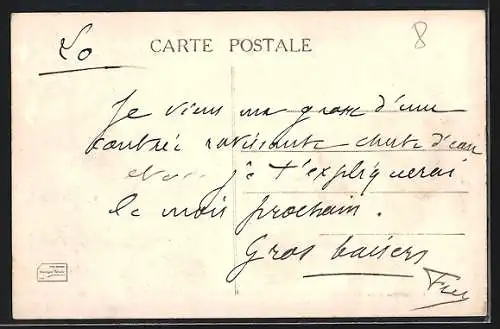 CARTE POSTALE
8
Je viens ma gosse d'une
contrée ravissante chute d'eau
je t'expliquerai
le mois prochain.
Gros baisers